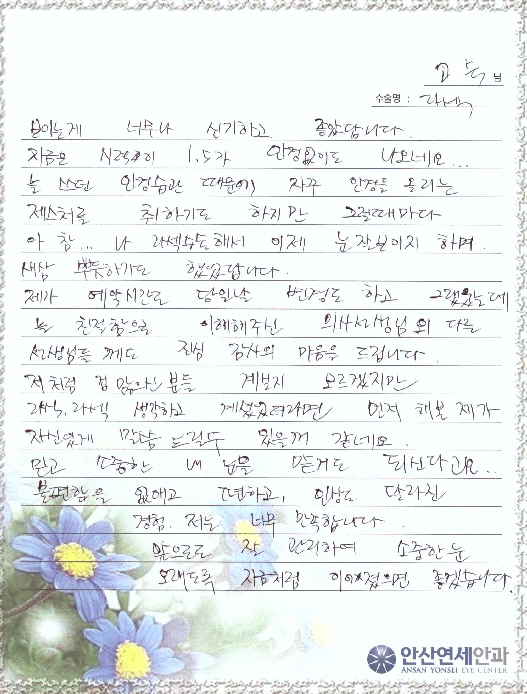 고 녹 님
수술명 : 라섹
보이는게 너무나 신기하고 좋았답니다.
지금은 시력이 1.5가 안경없이도 나오네요...
늘 쓰던 안경습관 때문에, 자꾸 안경을 올리는
제스처를 취하기도 하지만 그럴때마다
아 참... 나 라섹수술해서 이제 눈 잘보이지 하며.
새삼 뿌듯하기도 했었답니다.
제가 예약시간도 당일날 변경도 하고 그랬었는데
늘 친절함으로 이해해주신 의사선생님 외 다른
선생님들께도 진심 감사의 마음을 드립니다.
저처럼 겁 많으신 분들 계실지 모르겠지만
라식, 라섹 생각하고 계셨었더라면 먼저 해본 제가
자신있게 말씀 드릴수 있을꺼 같네요.
믿고 소중한 내 눈을 맡겨도 되신다고요..
불편함을 없애고 편하고, 인상도 달라진
경험. 저는 너무 만족합니다.
앞으로도 잘 관리하여 소중한 눈
오래도록 지금처럼 이어졌으면 좋겠습니다.
안산연세안과
ANSAN YONSEI EYE CENTER